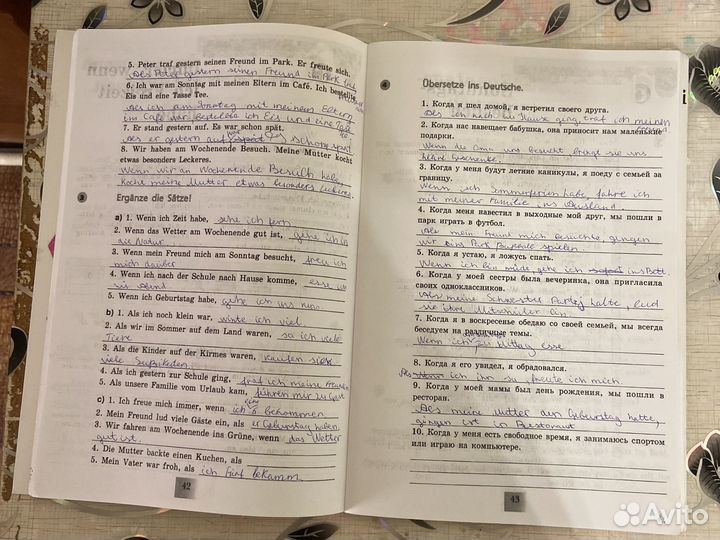 5. Peter traf gestern seinen Freund im Park. Er freute sich.
Als Peter gestern seinen Freund im Park
6. Ich war am Sonntag mit meinen Eltern im Café. Ich bestellte
Eis und eine Tasse Tee.
Als ich am Sonntag mit meinem Eltern
im Café war bestellte ich Eis und eine
7. Er stand gestern auf. Es war schon spät.
Als er gestern auf war schon spät
8. Wir haben am Wochenende Besuch. Meine Mutter kocht
etwas besonders Leckeres.
Wenn wir am Wochenende Besuch habe,
kocht meine Mutter etwas besonders Leckeres.
3 Ergänze die Sätze!
a) 1. Wenn ich Zeit habe, sehe ich fern
2. Wenn das Wetter am Wochenende gut ist, gehe ich in
die Natur
3. Wenn mein Freund mich am Sonntag besucht, freu ich
mich darüber
4. Wenn ich nach der Schule nach Hause komme, esse
5. Wenn ich Geburtstag habe, gehe ich ins
b) 1. Als ich noch klein war, ich viel
2. Als wir im Sommer auf dem Land waren, sa ich viele
Tiere
3. Als die Kinder auf der Kirmes waren, kauften sie
viele
4. Als ich gestern zur Schule ging, traf ich meine
5. Als unsere Familie vom Urlaub kam, fuhren wir zu Gast
c) 1. Ich freue mich immer, wenn ich bekommen
2. Mein Freund lud viele Gäste ein, als er Geburtstag haben
3. Wir fahren am Wochenende ins Grüne, wenn das Wetter
gut ist.
4. Die Mutter backte einen Kuchen, als
5. Mein Vater war froh, als ich Fünf bekamm
42
4 Übersetze ins Deutsche.
1. Когда я шел домой, я встретил своего друга.
Als ich nach Hause ging, traf ich meinen
2. Когда нас навещает бабушка, она приносит нам маленькие
подарки.
Wenn die Oma uns besucht bringt sie uns
kleine Geschenke.
3. Когда у меня будут летние каникулы, я поеду с семьей за
границу.
Wenn ich Sommerferien habe, fahre ich
mit meiner Familie ins Ausland
4. Когда меня навестил в выходные мой друг, мы пошли в
парк играть в футбол.
Als mein Freund mich besuchte, gingen
wir ins Park Fußballe spielen.
5. Когда я устаю, я ложусь спать.
Wenn ich bin müde gehe ich ins Bett.
6. Когда у моей сестры была вечеринка, она пригласила
своих одноклассников.
Als meine Schwester Partej halte, lud
sie ihre Mitschüler ein.
7. Когда я в воскресенье обедаю со своей семьей, мы всегда
беседуем на различные темы.
Wenn ich zu Mittag esse
8. Когда я его увидел, я обрадовался.
Als ich ihn su, freute ich mich.
9. Когда у моей мамы был день рождения, мы пошли в
ресторан.
Als meine Mutter am Geburtstag hatte,
gingen ist in Restorant
10. Когда у меня есть свободное время, я занимаюсь спортом
или играю на компьютере.
43
Avito